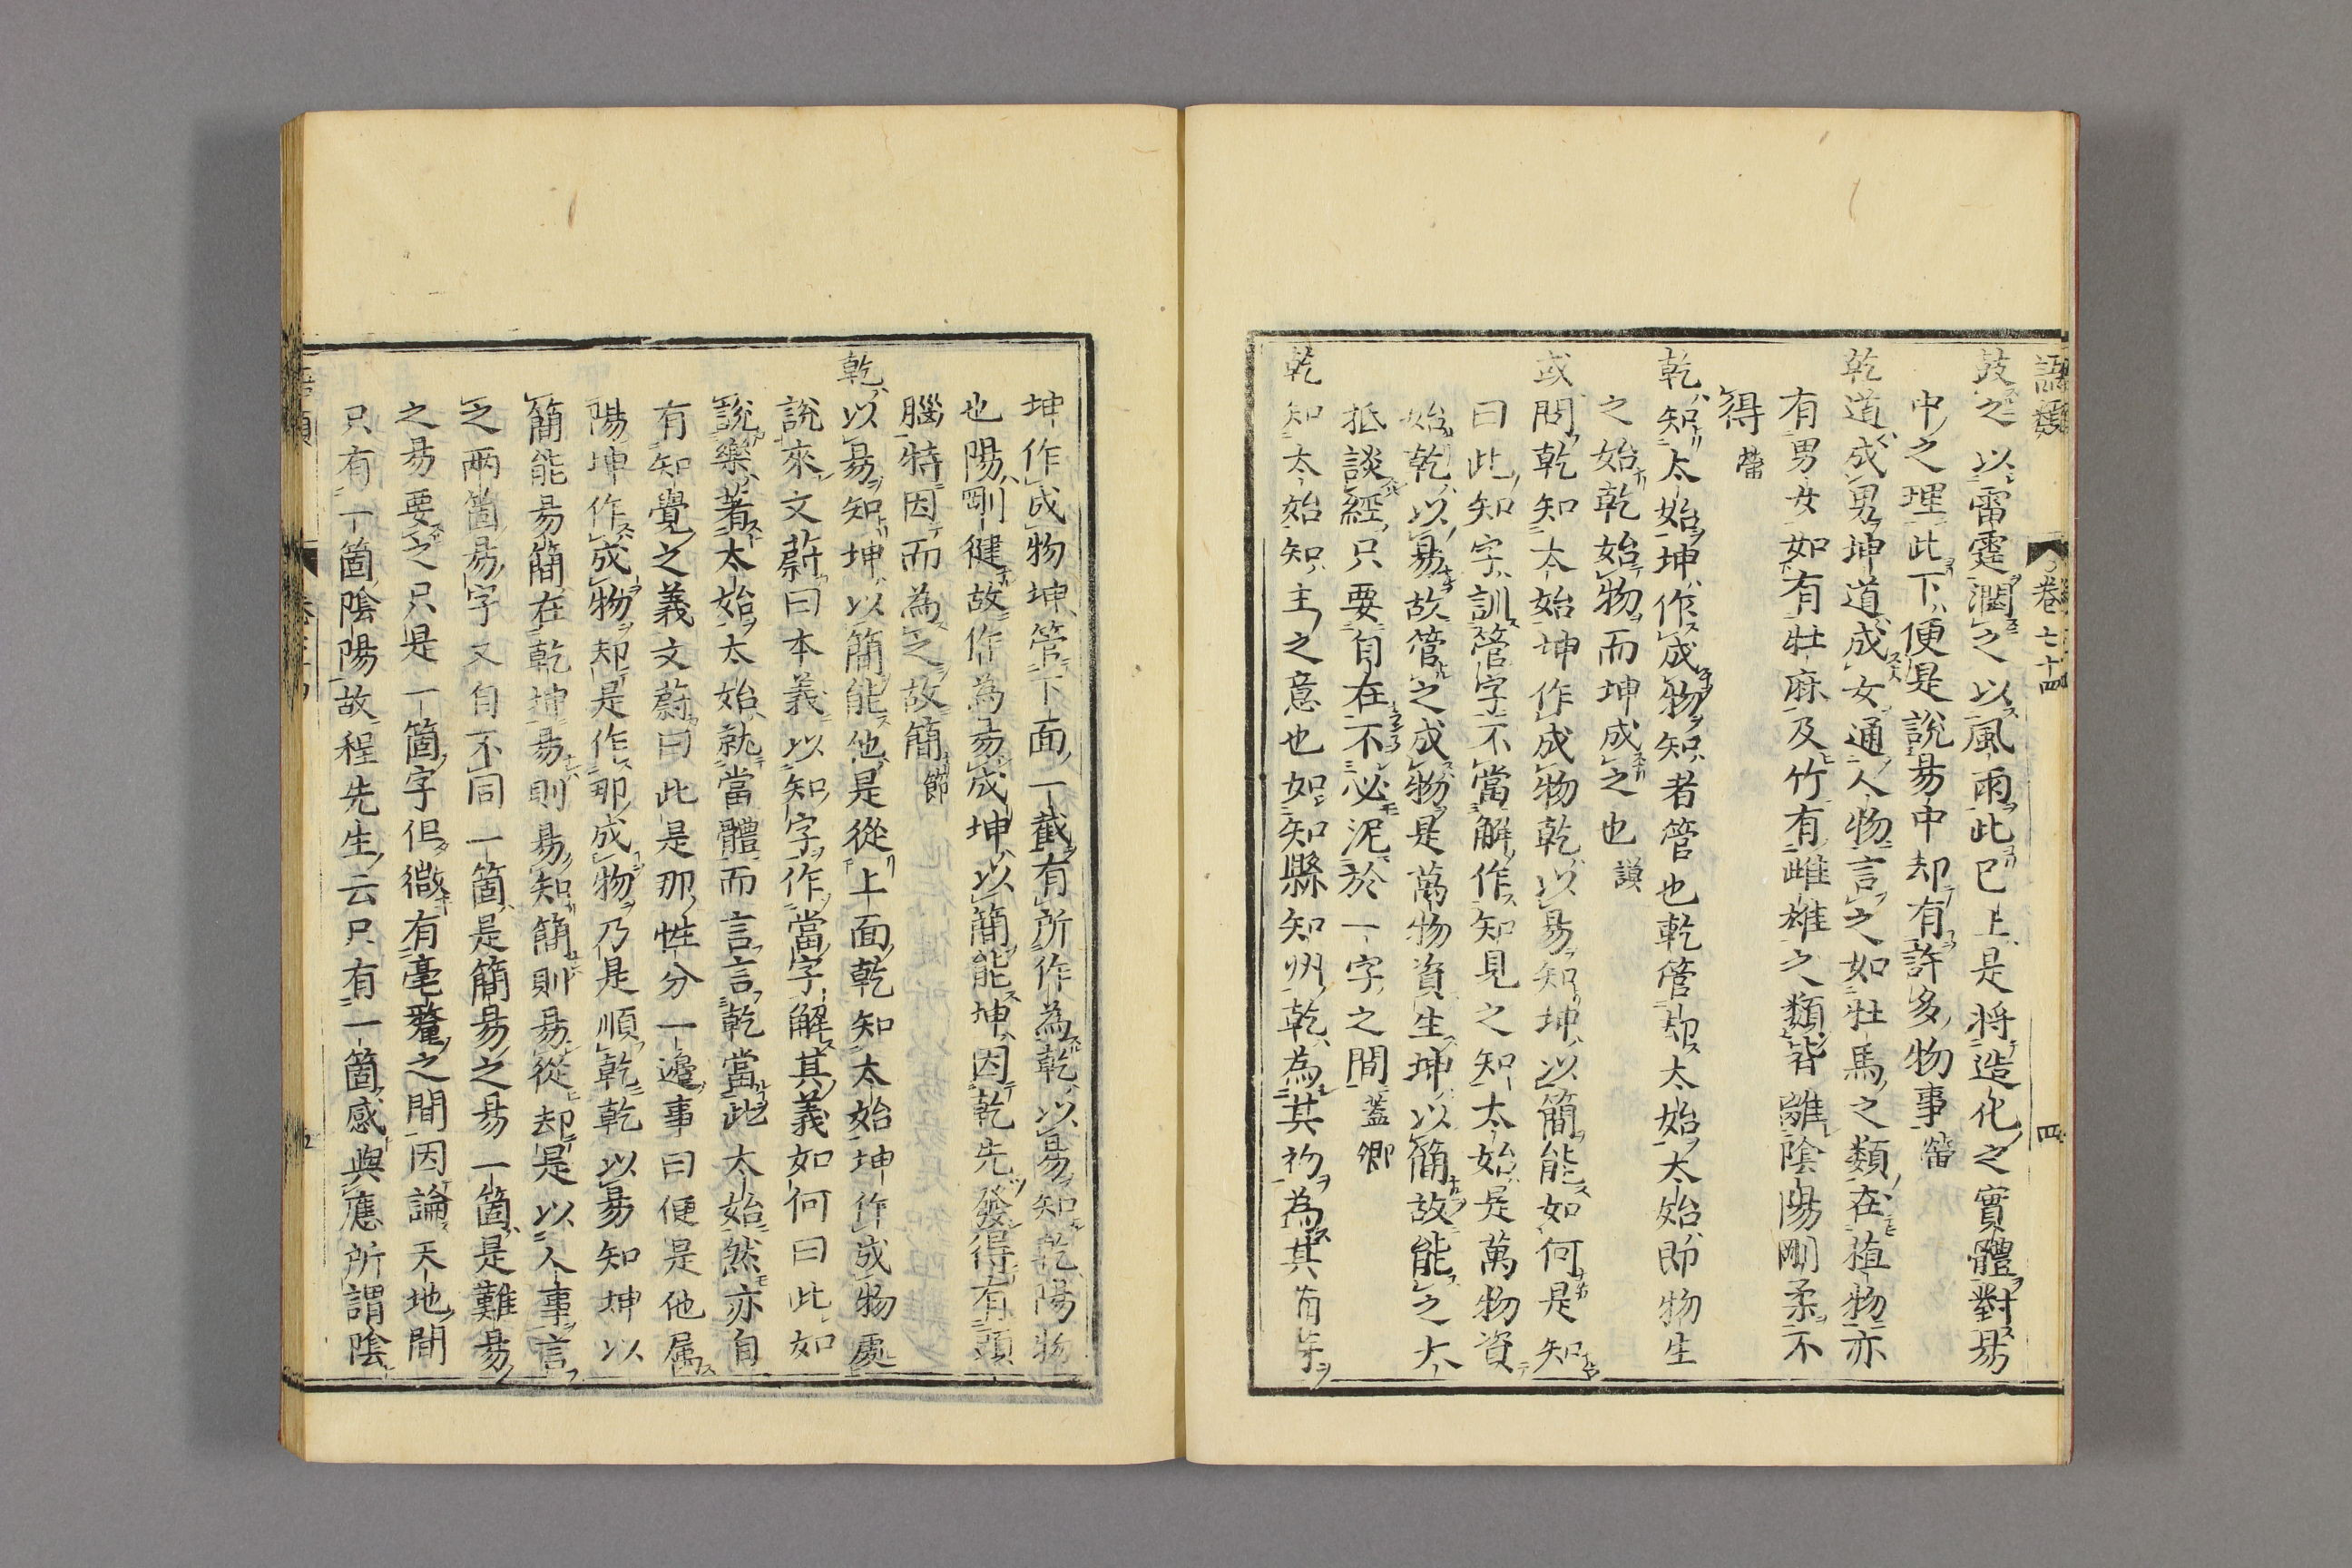 語類 卷七十四 四
鼓之以雷霆潤之以風雨此已上是將造化之實體對易
中之理此下便是說易中却有許多物事㽦
乾道成男坤道成女通人物言之如牡馬之類在植物亦
有男女如有牡麻及竹有雌雄之類皆離陰陽剛柔不
得㽦
乾知太始坤作成物知者管也乾管却太始太始即物生
之始乾始物而坤成之也謨
或問乾知太始坤作成物乾以易知坤以簡能如何是知
曰此知字訓管字不當解作知見之知太始是萬物資
始乾以易故管之成物是萬物資生坤以簡故能之大
抵談經只要自在不必泥於一字之間蓋卿
乾知太始知主之意也如知縣知州乾為其初為其萌芽
坤作成物坤管下面一截有所作為乾以易知乾陽物
也陽剛健故作為易成坤以簡能坤因乾先發得有頭
腦特因而為之故簡節
乾以易知坤以簡能他是從上面乾知太始坤作成物處
說來文蔚曰本義以知字作當字解其義如何曰此如
說樂著太始太始就當體而言言乾當此太始然亦自
有知覺之義文蔚曰此是那性分一邊事曰便是他属
陽坤作成物却是作那成物乃是順乾乾以易知坤以
簡能易簡在乾坤易則易知簡則易從却是以人事言
之兩箇易字又自不同一箇是簡易之易一箇是難易
之易要之只是一箇字但微有毫釐之間因論天地間
只有一箇陰陽故程先生云只有一箇感與應所謂陰